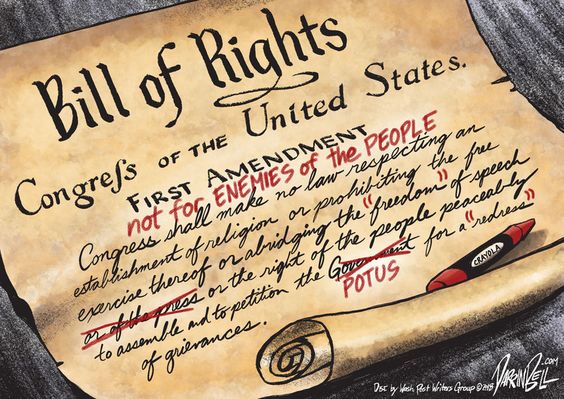 Bill of Rights
Congreſs OF THE United States.
FIRST AMENDMENT
not for ENEMIES of the PEOPLE
Congress shall make no law respecting an
establishment of religion or prohibiting the free
exercise thereof or abridging the "freedom" of speech
or of the press or the right of the people peaceably
to assemble and to petition the Government for a "redress"
POTUS
of grievances.
CRAYOLA
DIST. by Wash. Post Writers Group ©2018
DARRINBELL.COM